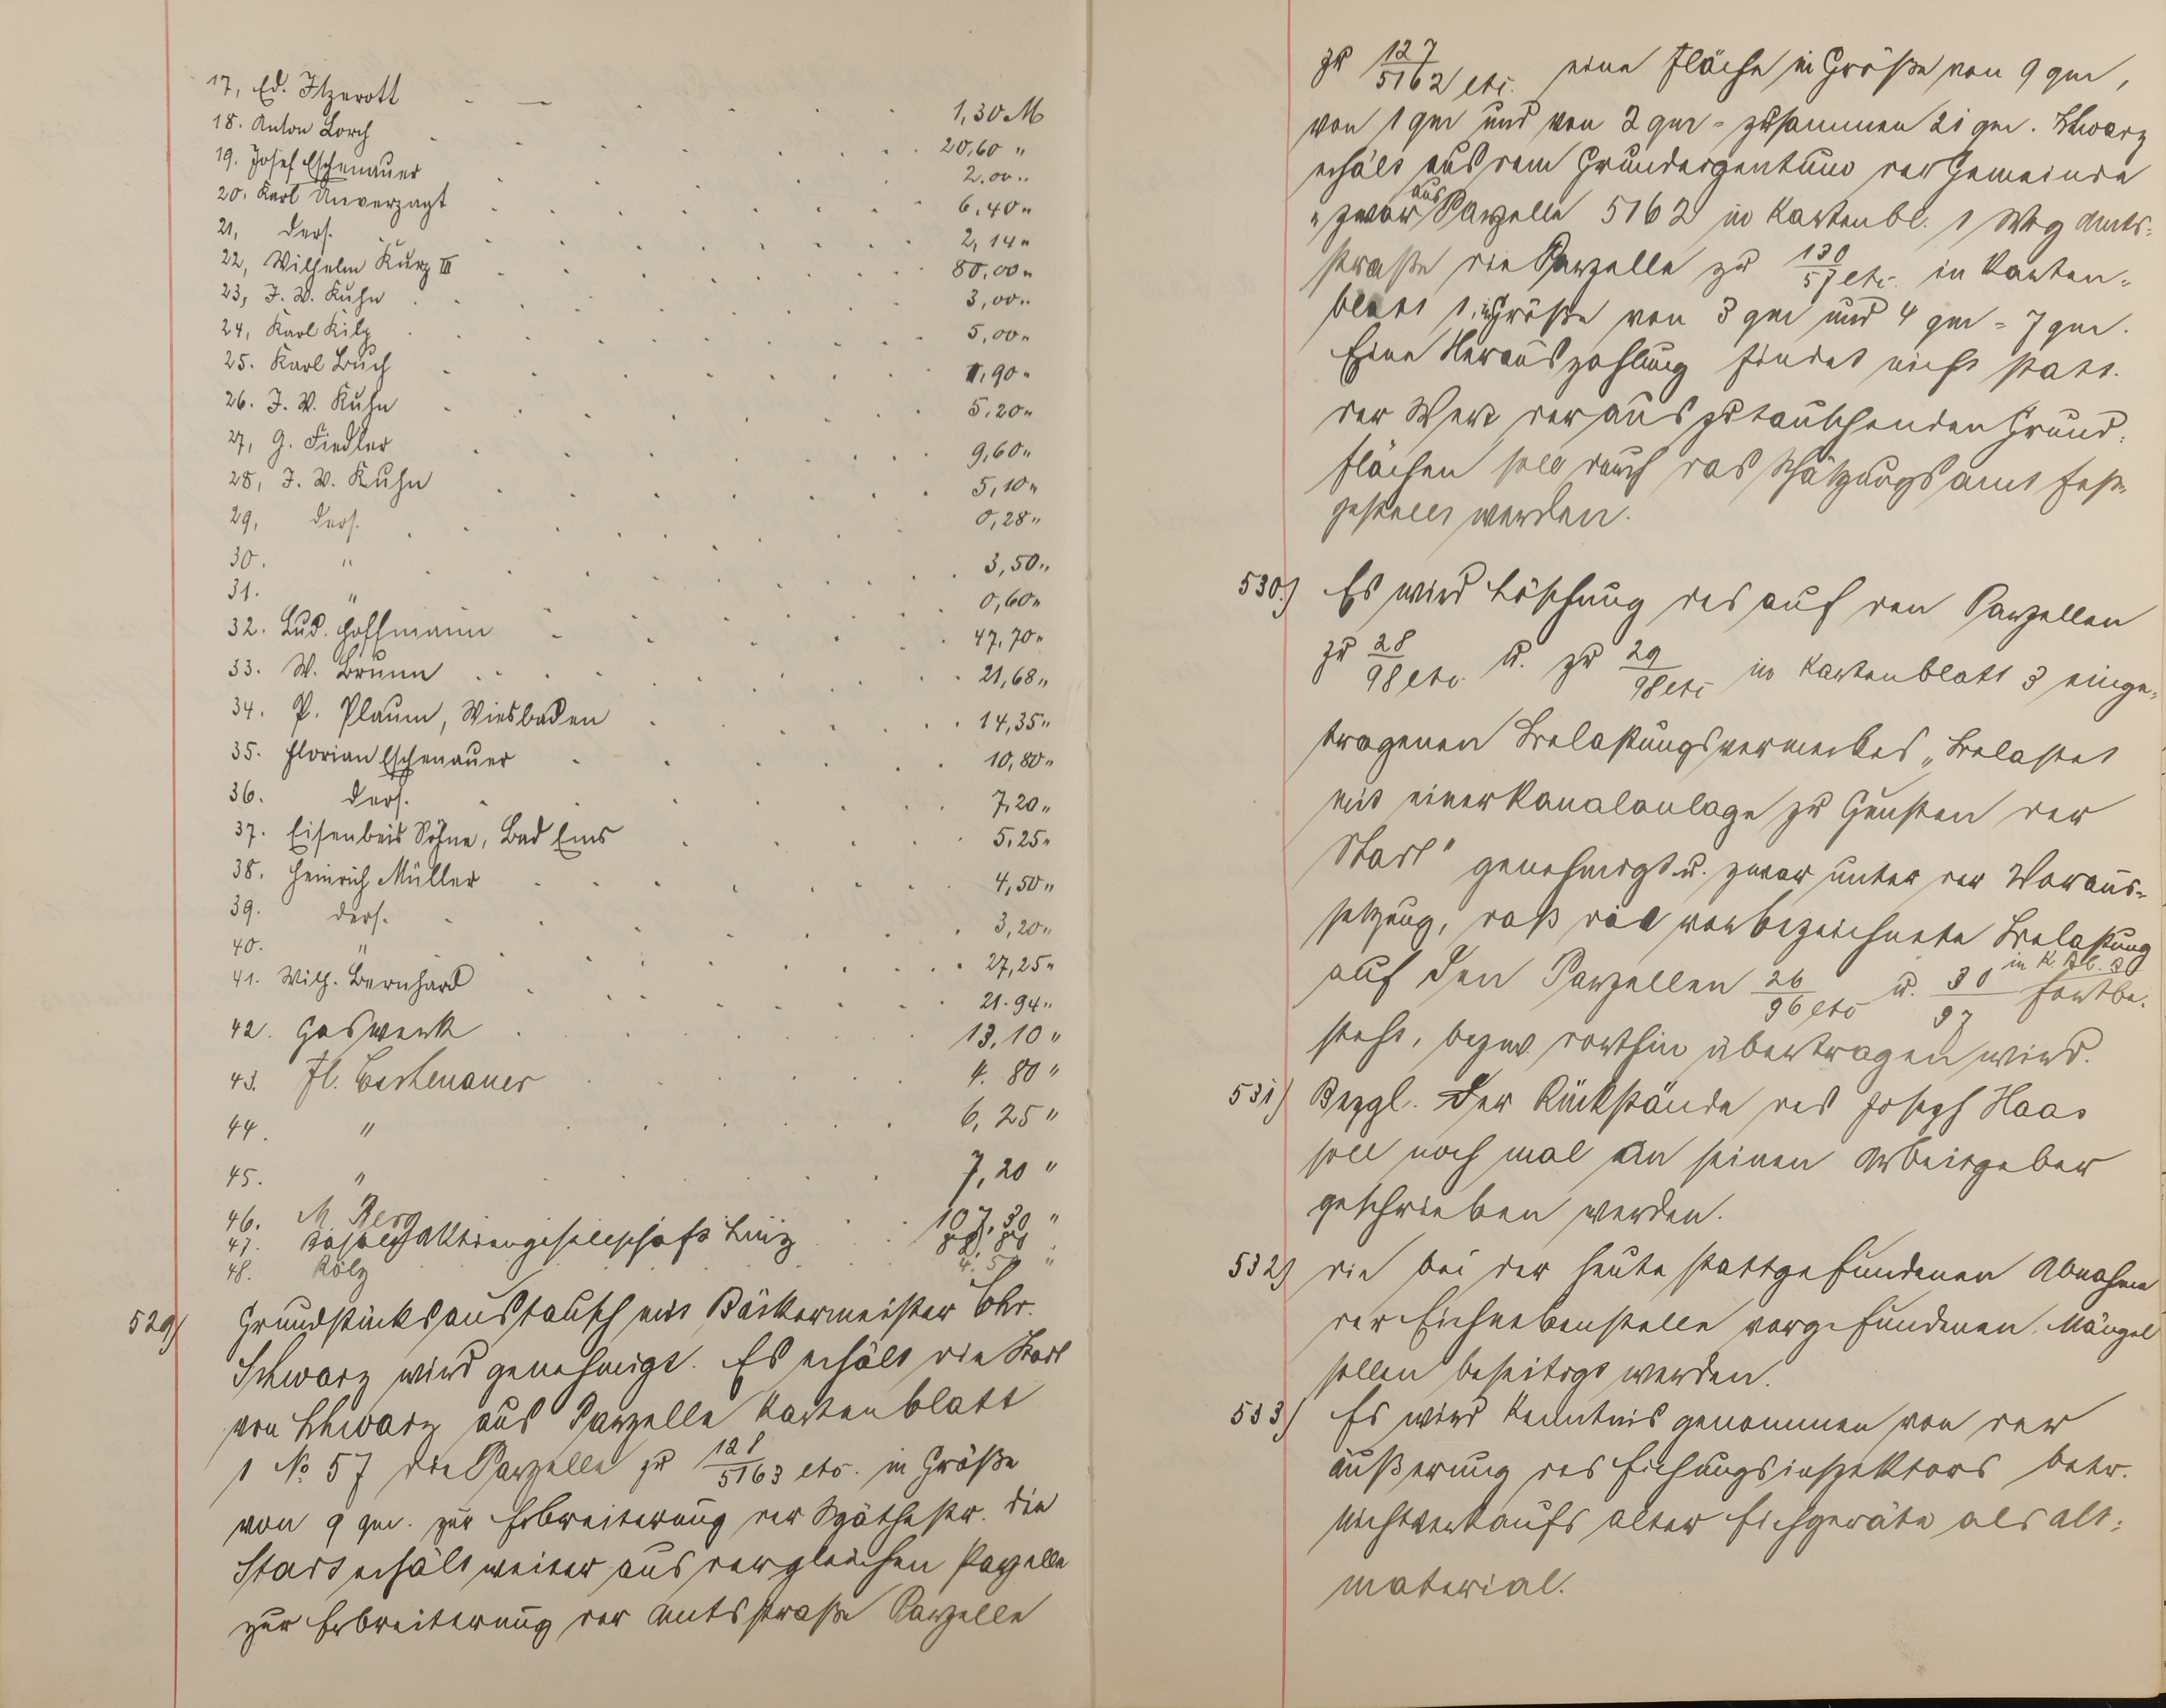 17, Ed. Itzerott . — . . . . 1,30 M
18. Anton Lorch . . . . . . 20,60 "
19. Josef Eschenauer . . . . . 2.00 "
20. Karl Unverzagt . . . . . . 6,40 "
21, ders. . . . . . . 2,14 "
22, Wilhelm Kurz III . . . . . . 80,00 "
23, J. W. Kuhn . . . . . . 3,00 "
24, Karl Kilz . . . . . . 5,00 "
25. Karl Buch . . . . . . 1,90 "
26. J. W. Kuhn . . . . . . 5,20 "
27, G. Fiedler . . . . . . 9,60 "
28, J. W. Kuhn . . . . . . 5,10 "
29, ders. . . . . . . 0,28 "
30. " . . . . . . 3,50 "
31. " . . . . . . 0,60 "
32. Lud. Hoffmann . . . . . 47,70 "
33. W. Brunn . . . . . . 21,68 "
34. P. Plaum, Wiesbaden . . . . 14,35 "
35. Florian Eschenauer . . . . . 10,80 "
36. ders. . . . . . 7,20 "
37. Eisenbeis Söhne, Bad Ems . . . . 5,25 "
38. Heinrich Müller . . . . . 4,50 "
39. ders. . . . . . . 3,20 "
40. " . . . . . 27,25 "
41. Wilh. Bernhard . . . . . 21.94 "
42. Gaswerk . . . . . . 13,10 "
43. Fl. Eschenauer . . . . . 4. 80 "
44. " . . . . . 6, 25 "
45. " . . . . 7,20 "
46. M. Berg . . 107,30 "
47. Basaltaktiengesellschaft Linz . .
48. Kölz . . . "
529) Grundstücksaustausch mit Bäckermeister Chr.
Schwarz wird genehmigt. Es erhält die Stadt
von Schwarz aus Parzelle Kartenblatt
1 No 57 die Parzelle zu 128/5163 etc. in Größe
von 9 qm. zur Erbreiterung der Späthestr. Die
Stadt erhält weiter aus dergleichen Pazelle
zur Erbreiterung der Amtsstraße Parzelle
zu 127/5162 etc. eine Fläche in Größe von 9 qm,
von 1 qm und von 2 qm = zusammen 21 qm. Schwarz
erhält aus dem Grundeigentum der Gemeinde
u zwar aus Parzelle 5162 in Kartenbl. 1 Weg Amts=
straße die Parzelle zu 130/57 etc. in Karten=
blatt 1 in Größe von 3 qm und 4 qm = 7 qm.
Eine Herauszahlung findet nicht statt.
der Wert der auszutauschenden Grund=
flächen soll durch das Schätzungsamt fest=
gestellt werden.
530) Es wird Löschung des auf den Parzellen
zu 28/98 etc. u. zu 29/98 etc in Kartenblatt 3 einge=
tragenen Belastungsvermerkes „Belastet
mit einer Kanalanlage zu Gunsten der
Stadt" genehmigt u. zwar unter der Voraus=
setzung, daß die vorbezeichnete Belastung
auf den Parzellen 26/96 etc u. 30/97 in K. Bl. 30 fortbe=
steht, bezw. dorthin übertragen wird.
531) Bezgl. der Rückstände des Joseph Haas
soll noch mal an seinen Arbeitgeber
geschrieben werden.
532) die bei der heute stattgefundenen Abnahme
der Eichnebenstelle vorgefundenen Mängel
sollen beseitigt werden.
533) Es wird Kenntnis genommen von der
äußerung des Eichungsinspektors betr.
nichtverkaufs alter Eichgeräte als alt=
material.